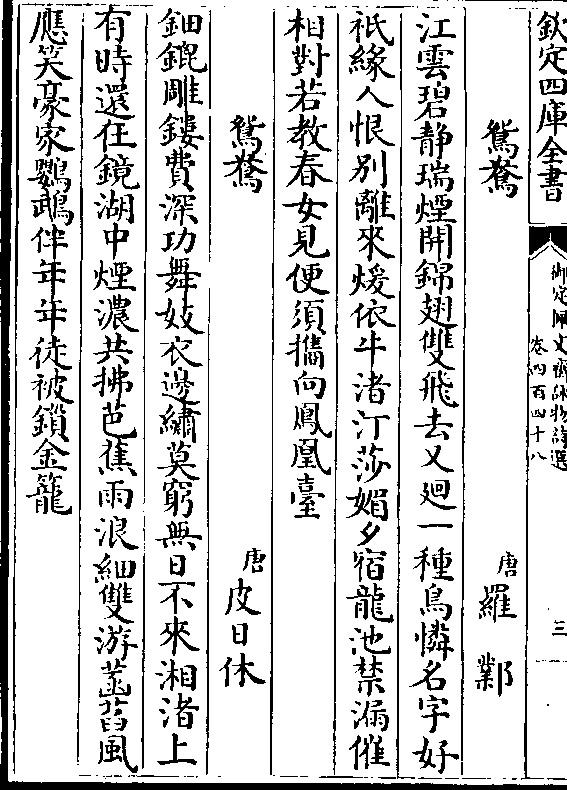 欽定四庫全書
御定佩文齋詠物詩選
卷四百四十八
三
鴛鴦
唐 羅鄴
江雲碧靜瑞煙開錦翅雙飛去又廻一種鳥憐名字好
祇緣人恨別離來煖依牛渚汀莎媚夕宿龍池禁漏催
相對若教春女見便須攜向鳳凰臺
鴛鴦
唐 皮日休
鈿鎞雕鏤費深功舞妓衣邊繡莫窮無日不來湘渚上
有時還在鏡湖中煙濃共拂芭蕉雨浪細雙游菡萏風
應笑豪家鸚鵡伴年年徒被鎖金籠